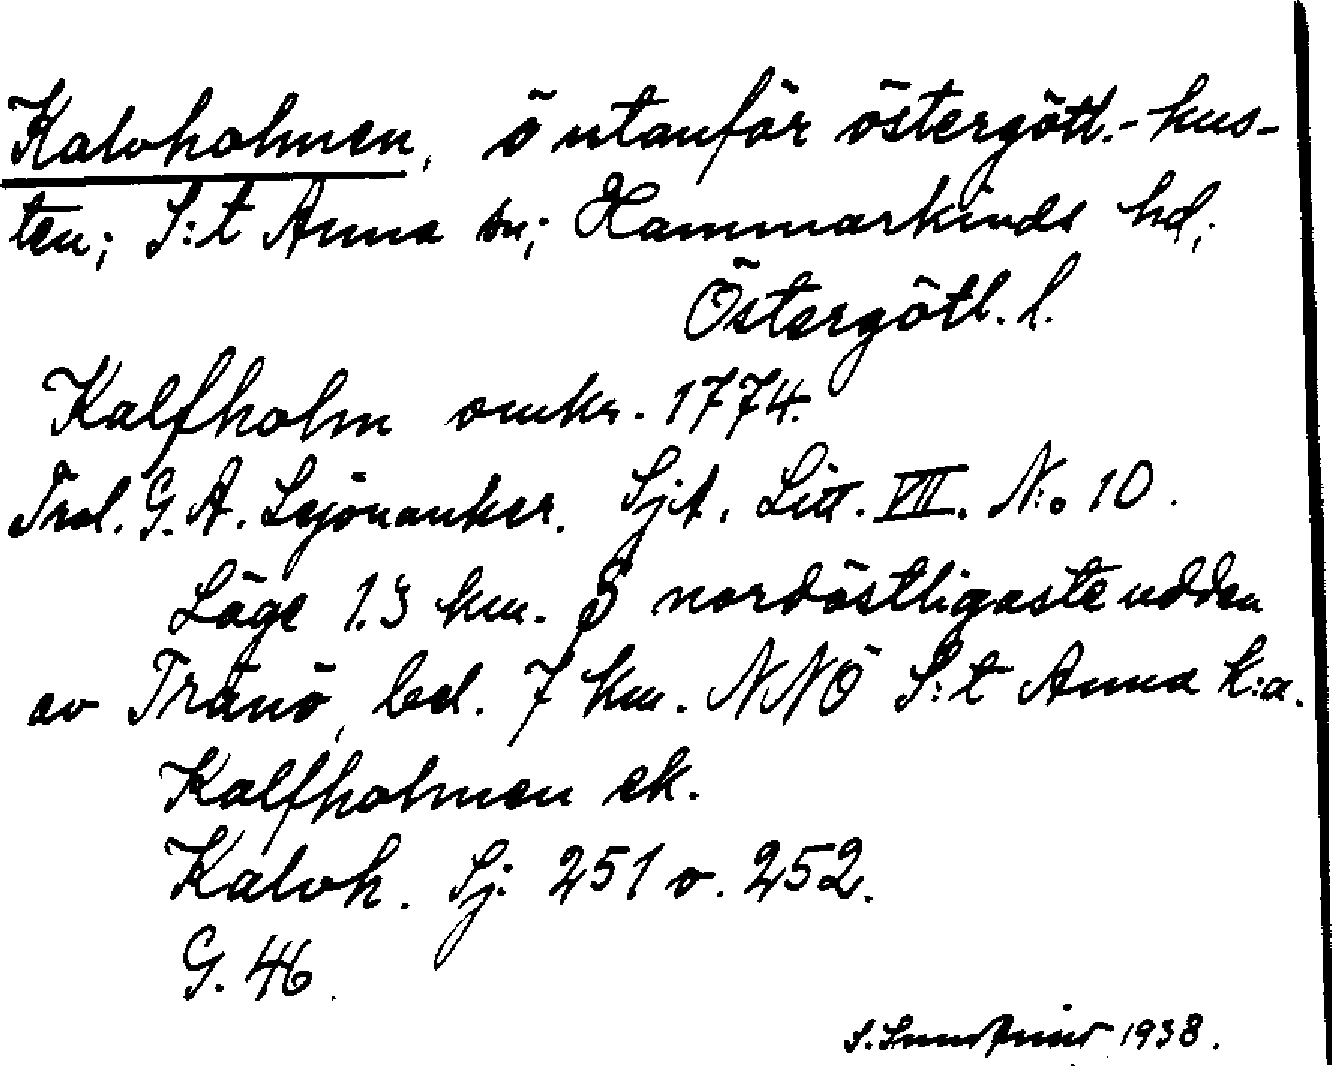 Kalvholmen, ö utanför östergötl.-kus-
ten; S:t Anna sn; Hammarkinds hd;
Östergötl. l.
Kalfholm omkr. 1774.
Trol. G. A. Lejonanker. Sjk. Litt. VIII. N:o 10.
Läge 1.3 km. S nordöstligaste udden
av Tränö, bel. 7 km. NNÖ S:t Anna k:a.
Kalfholmen ek.
Kalvh. Sj. 251 o. 252.
G. 46.
S. 1938.